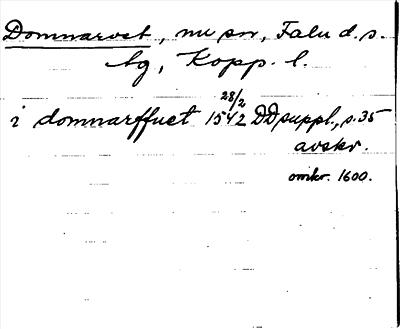 Domnarvet, nu sn, Falu d.s.
tg, Kopp. l.
28/2
i domnarffuet 1542 DD suppl., s. 35
avskr.
omkr. 1600.